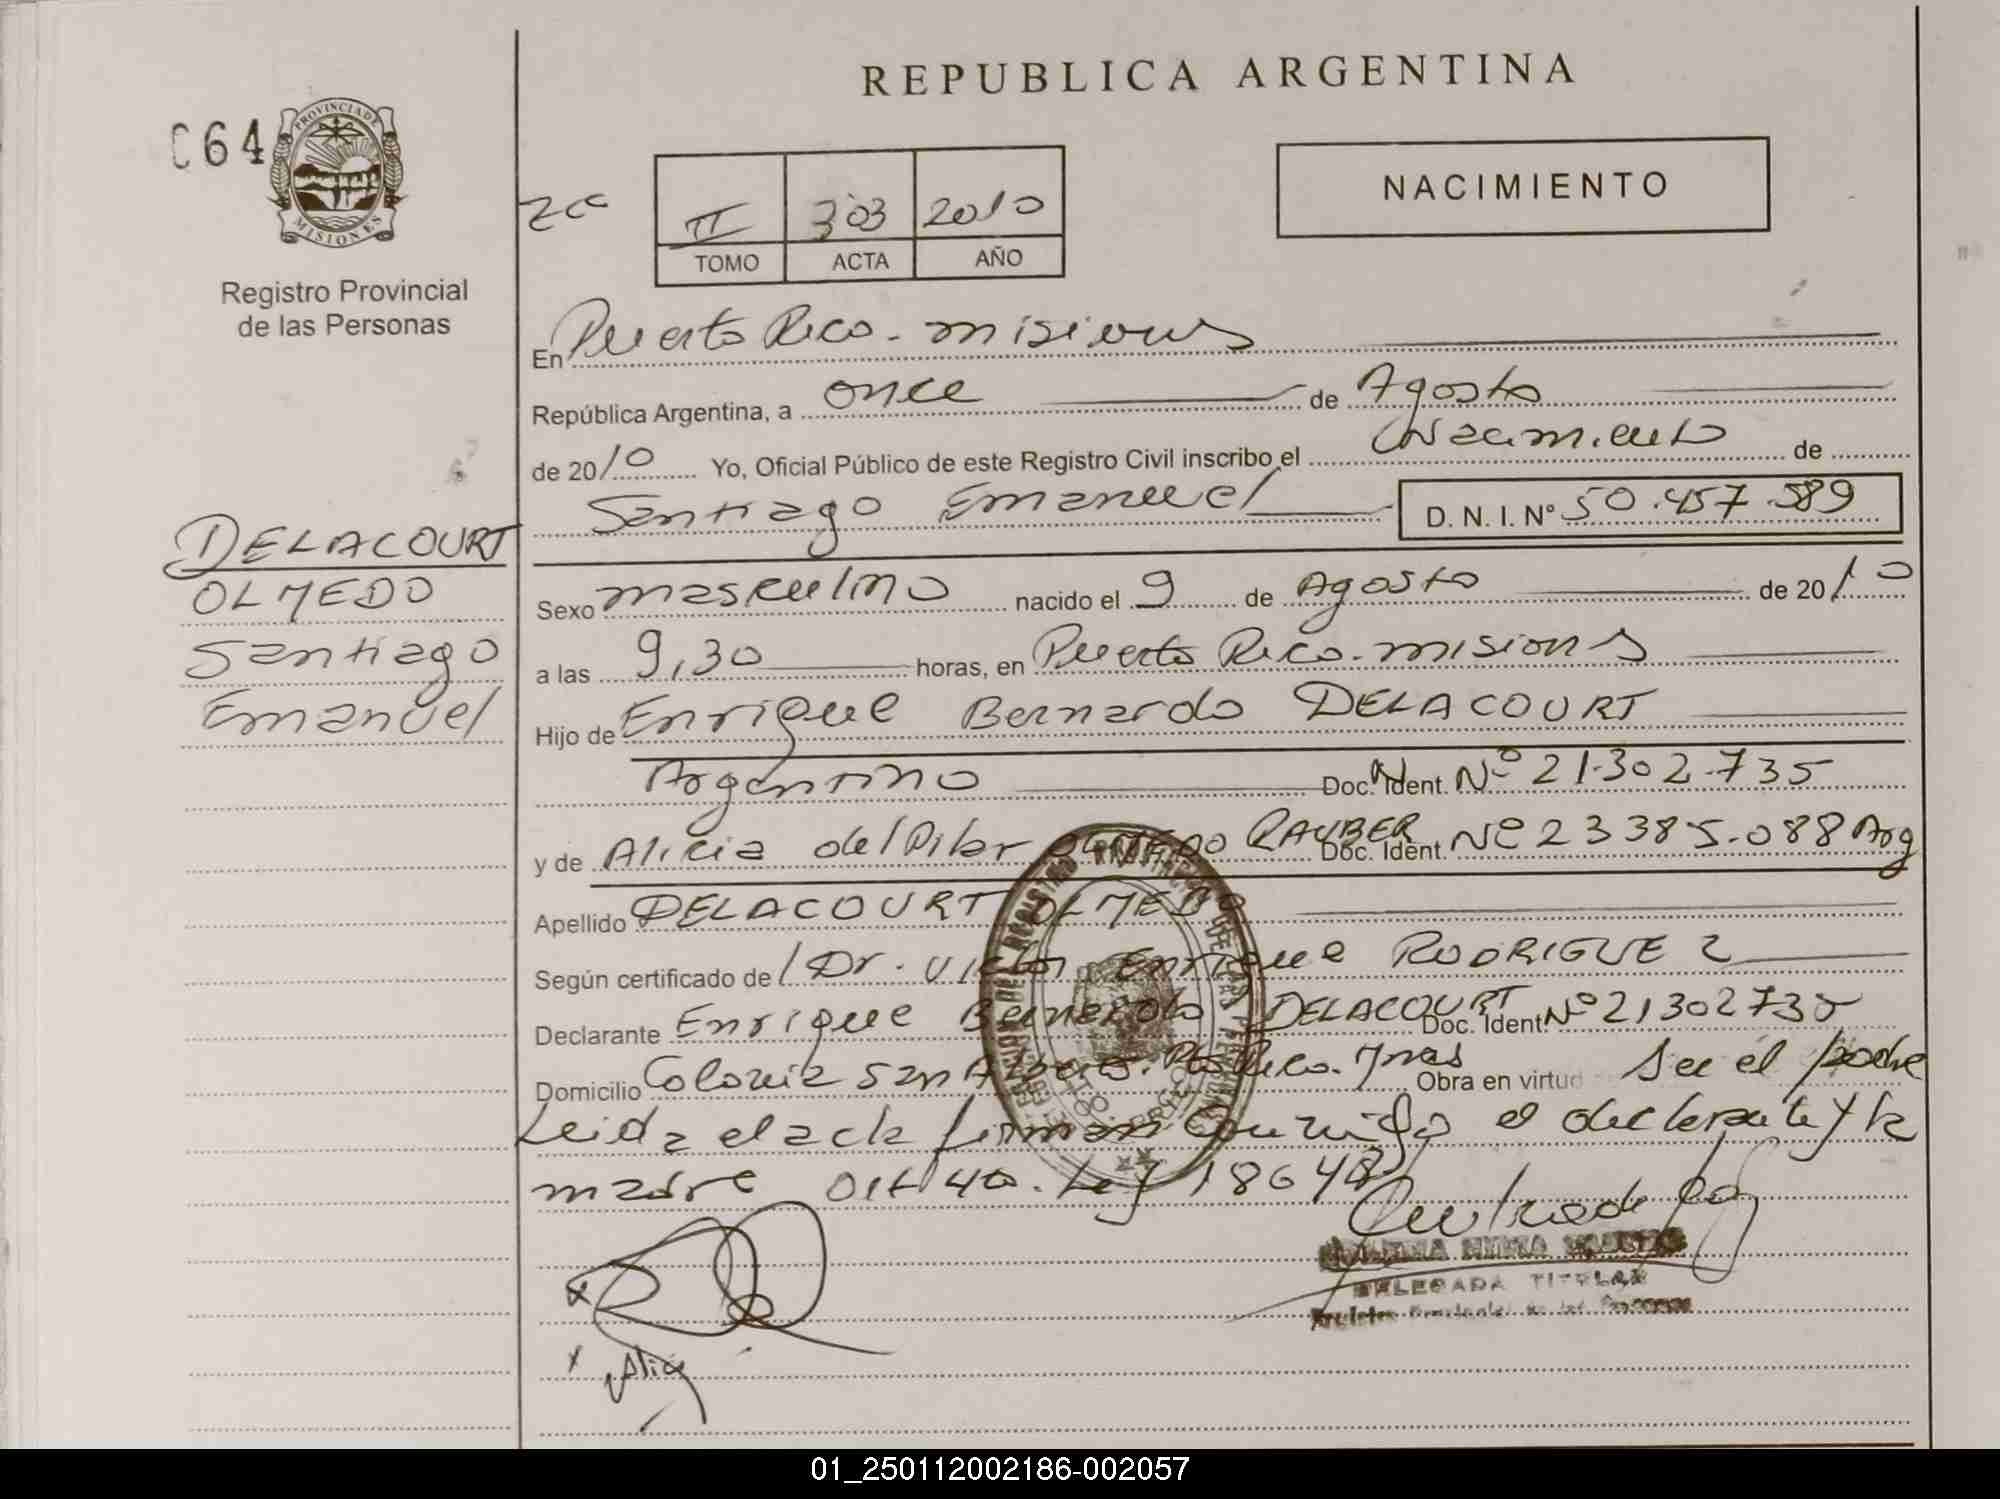 REPUBLICA ARGENTINA
C64
PROVINCIA DE
MISIONES
Registro Provincial
de las Personas
NACIMIENTO
II 303 2010
TOMO ACTA AÑO
En Puerto Rico - misiones
República Argentina, a once de Agosto
de 2010 Yo, Oficial Público de este Registro Civil inscribo el Nacimiento de
Santiago Emanuel D. N. I. Nº 50.457.589
DELACOURT
OLMEDO
Santiago
Emanuel
Sexo masculino nacido el 9 de Agosto de 2010
a las 9,30 horas, en Puerto Rico - misiones
Hijo de Enrique Bernardo DELACOURT
Argentino Doc. Ident. Nº 21.302.735
y de Alicia del Pilar OLMEDO RAUBER Doc. Ident. Nº 23385.088 Arg
Apellido DELACOURT OLMEDO
Según certificado de Dr. Victor Enrique RODRIGUEZ
Declarante Enrique Bernardo DELACOURT Doc. Ident Nº 21302735
Domicilio Colonia San Alberto. Pto Rico. Mnes Obra en virtud Ser el padre
Leida el acta firman Conmigo el declarante y la
madre Art 40. Ley 18648
DELEGADA TITULAR
Registro Provincial de las Personas
Alic
01_250112002186-002057